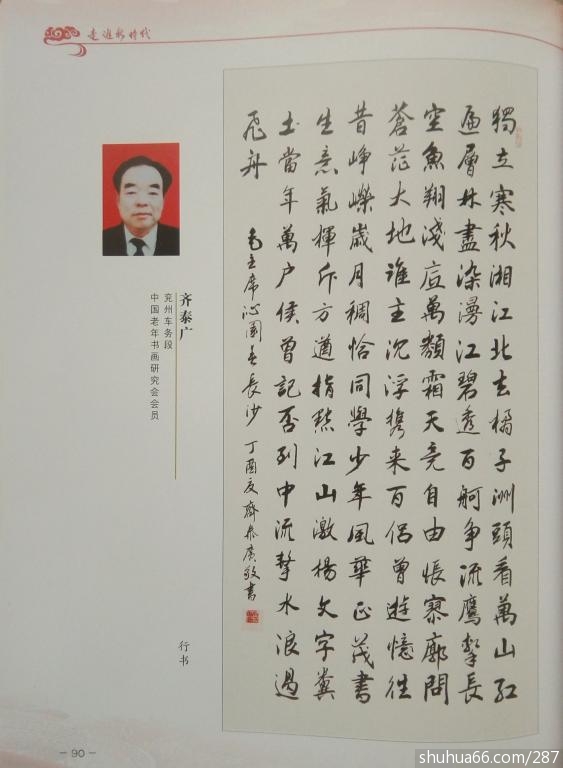 走進新时代
獨立寒秋湘江北去橘子洲頭看萬山红
遍層林盡染漫江碧透百舸争流鷹擊長
空魚翔淺底萬類霜天竞自由悵寥廓問
蒼茫大地誰主沉浮携来百侣曾遊憶往
昔峥嶸歲月稠恰同學少年風華正茂書
生意氣揮斥方遒指點江山激揚文字糞
土當年萬户侯曾記否到中流擊水浪遏
飛舟
毛主席沁園春長沙 丁酉夏齊泰廣敬書
齐泰广
兖州车务段
中国老年书画研究会会员
行书
－90－
shuhua66.com/287